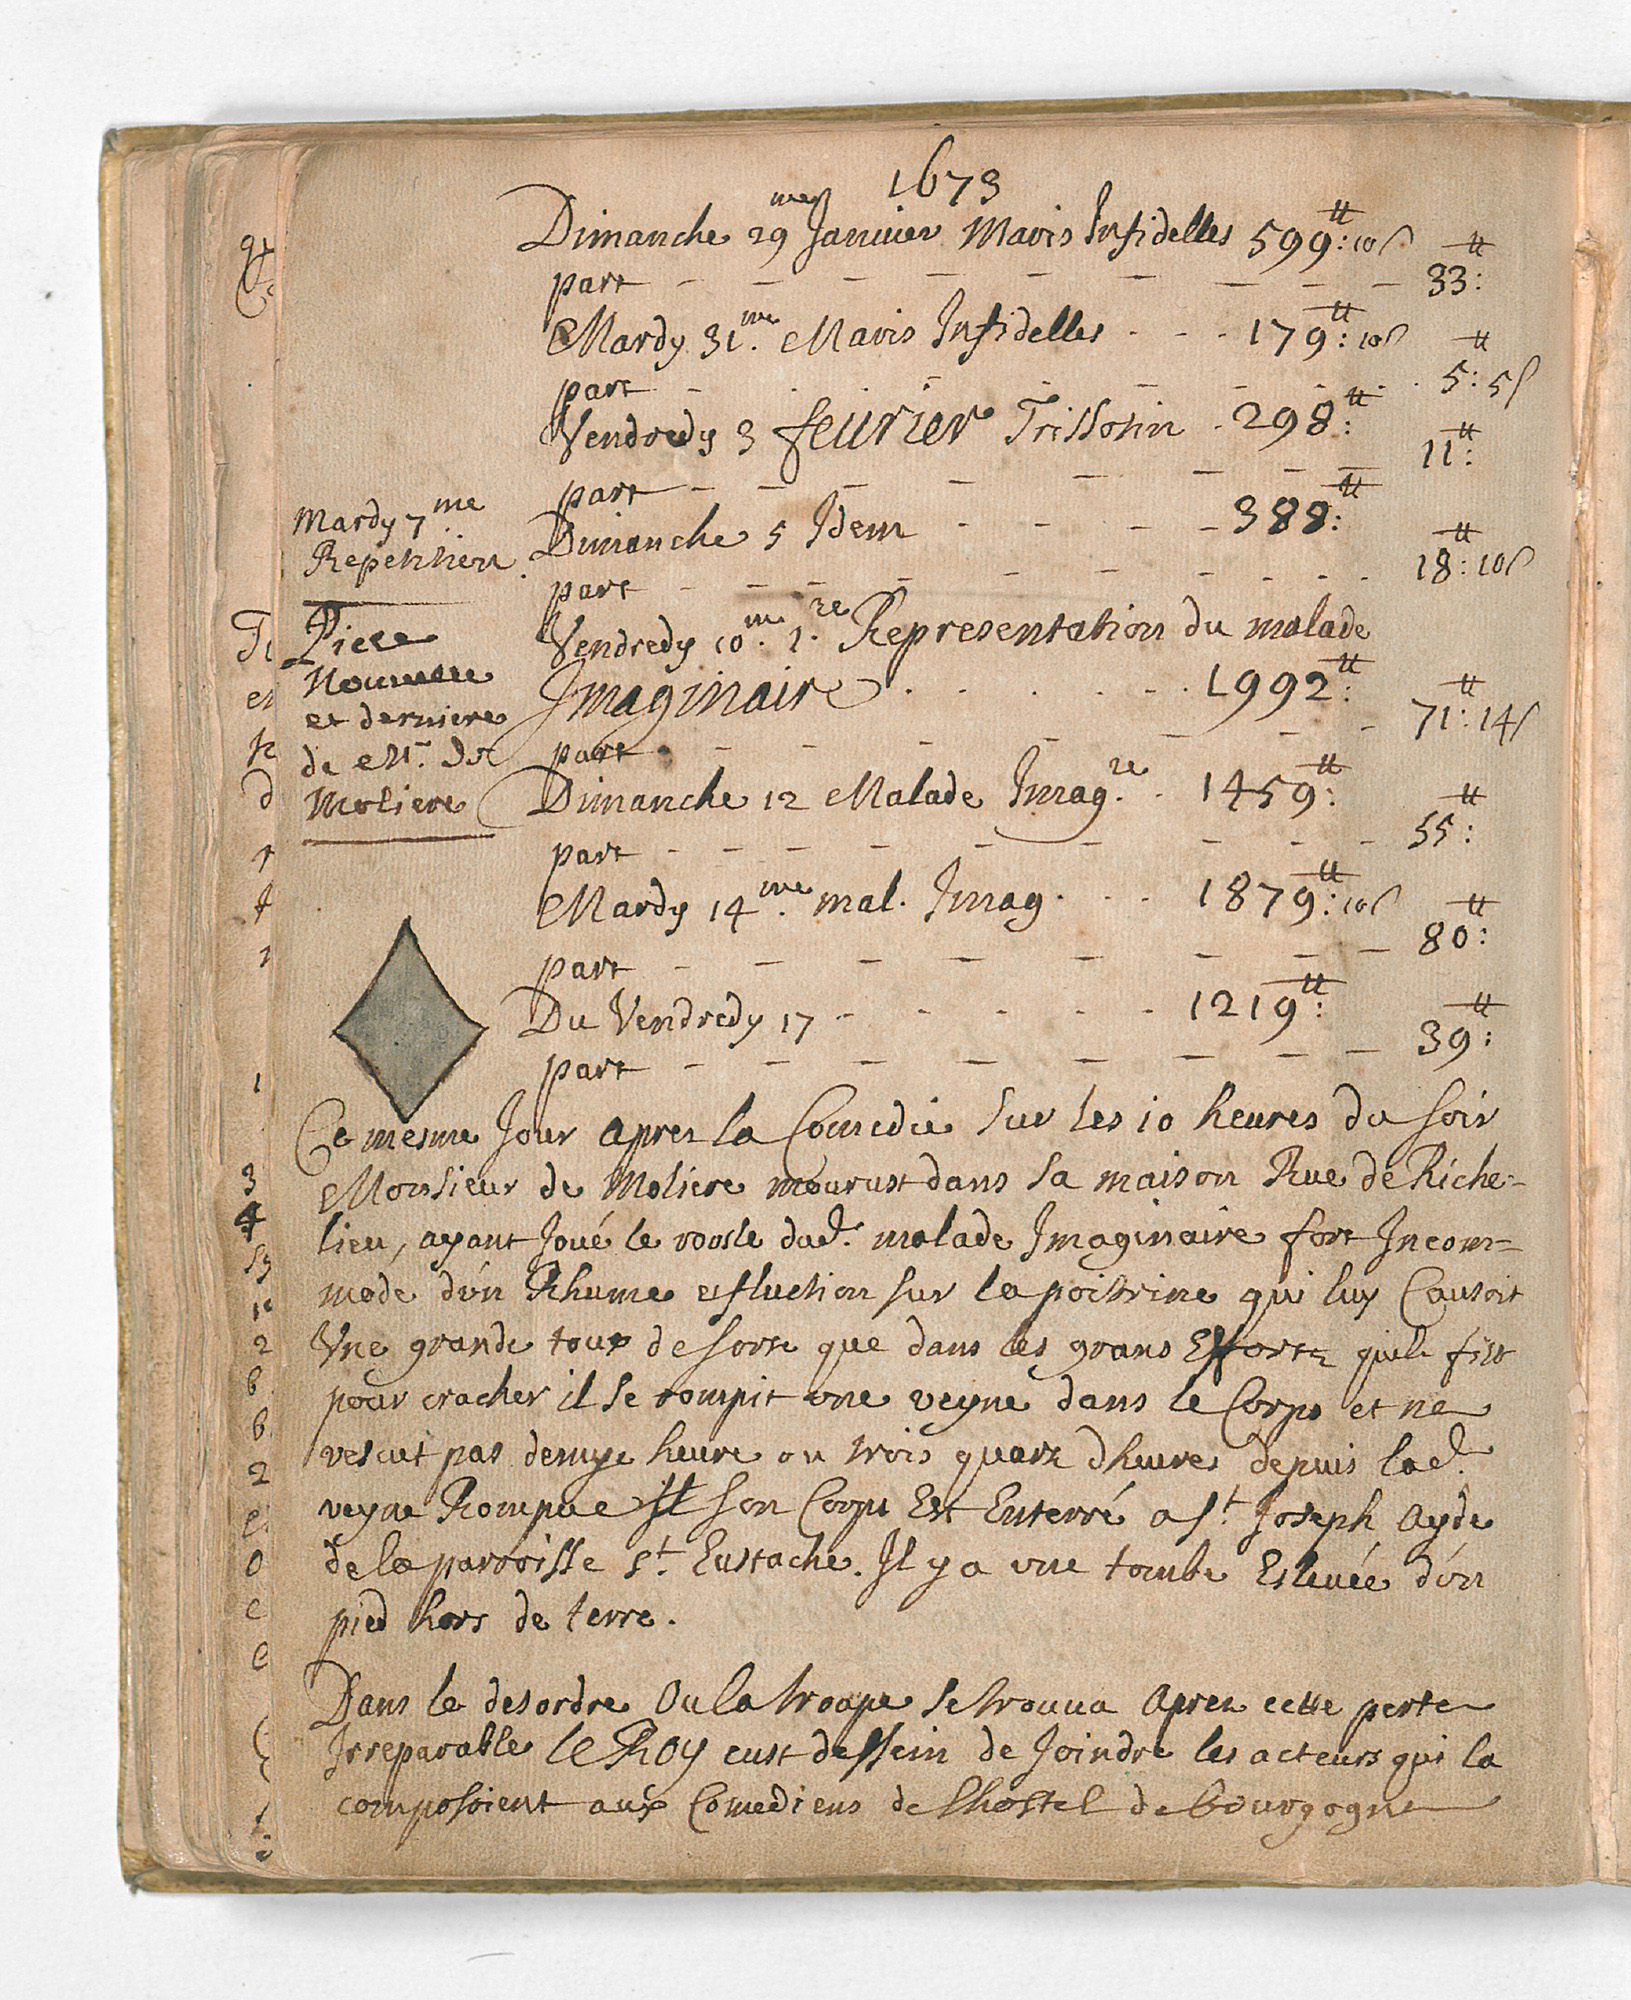 1673
Dimanche 29me Januier Maris Infidelles 599tt: 10ſ
part 33tt:
Mardy 31.me Maris Infidelles 179tt: 10ſ
part 5tt: 5ſ
Vendredy 3 feurier Trissotin 298tt:
part 11tt:
Mardy 7me
Repetition.
Dimanche 5 Idem 388tt:
part 18tt: 10ſ
Piece
Nouuelle
et derniere
de Mr. De
Moliere
Vendredy 10.me 1.re Representation du malade
Imaginaire 1992tt:
part 71tt: 14ſ
Dimanche 12 Malade Imag.re 1459tt:
part 55tt:
Mardy 14.me mal. Imag. 1879tt: 10ſ
part 80tt:
Du Vendredy 17 1219tt:
part 39tt:
Ce mesme Jour apres la Comedie sur les 10 heures du soir
Monsieur de Moliere mourust dans sa maison Rue de Riche=
lieu, ayant Joué le roosle dud. malade Imaginaire fort Incom=
modé d'un Rhume et fluction sur la poitrine qui luy Causoit
Vne grande toux de sorte que dans les grans Efforts quil fist
pour cracher il se rompit une veyne dans le Corps et ne
vescut pas demye heure ou trois quarts dheures depuis lad.
veyne Rompue son Corps Est Enterré a St. Joseph Ayde
de la parroisse St. Eustache. Il y a une tombe Esleuée d'un
pied hors de terre.
Dans le desordre Ou la troupe se trouua Apres cette perte
Irreparable le Roy eust dessein de Joindre les acteurs qui la
composoient aux Comediens de lhostel de bourgogne